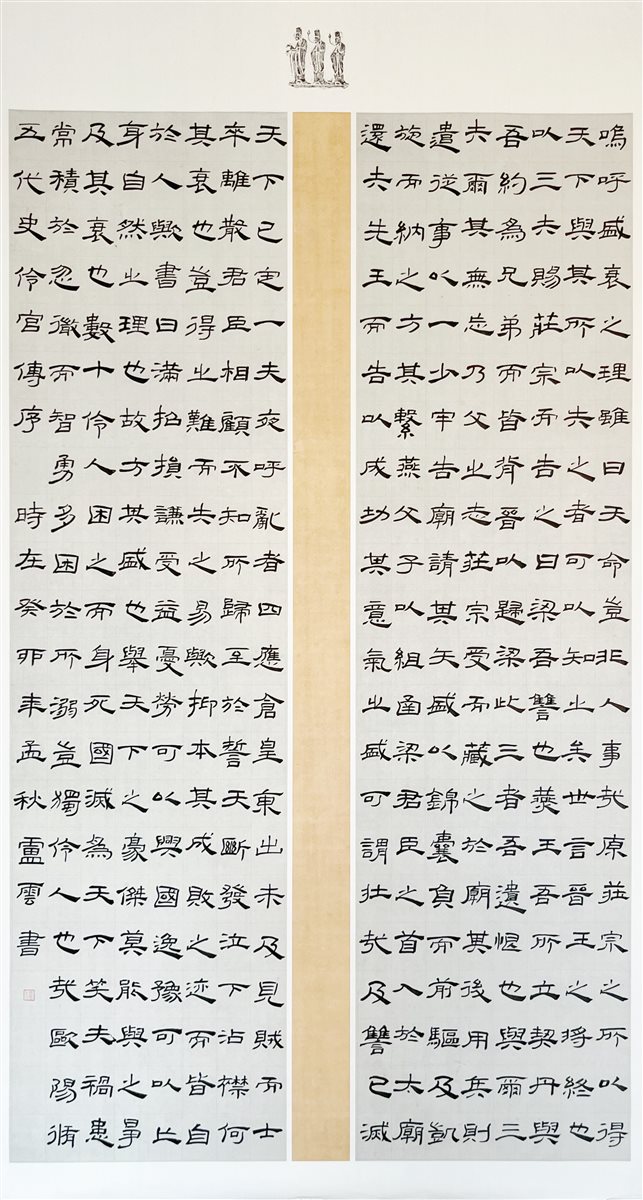 嗚呼盛衰之理雖曰天命豈非人事哉原莊宗之所以得
天下與其所以失之者可以知之矣世言晉王之將終也
以三矢賜莊宗而告之曰梁吾讐也燕王吾所立契丹與
吾約為兄弟而皆背晉以歸梁此三者吾遺恨也與爾三
矢爾其無忘乃父之志莊宗受而藏之於廟其後用兵則
遣從事以一少牢告廟請其矢盛以錦囊負而前驅及凱
旋而納之方其繫燕父子以組函梁君臣之首入於太廟
還矢先王而告以成功其意氣之盛可謂壯哉及讐已滅
天下已定一夫夜呼亂者四應倉皇東出未及見賊而士
卒離散君臣相顧不知所歸至於誓天斷發泣下沾襟何
其衰也豈得之難而失之易歟抑本其成敗之迹而皆自
於人歟書曰滿招損謙受益憂勞可以興國逸豫可以亡
身自然之理也故方其盛也舉天下之豪傑莫能與之爭
及其衰也數十伶人困之而身死國滅為天下笑夫禍患
常積於忽微而智勇多困於所溺豈獨伶人也哉歐陽脩
五代史伶官傳序 時在癸卯年孟秋盧雲書